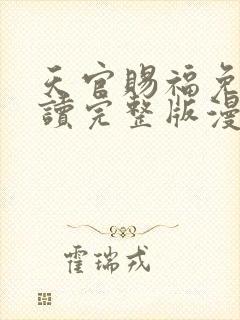 天官賜福免
讀完整版漫
霍瑞戎